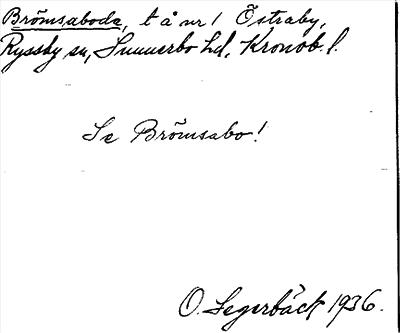 Brömsaboda, t å nr 1 Östraby,
Ryssby sn, Sunnerbo hd, Kronob. l.
Se Brömsabo!
O. Segerbäck 1936.